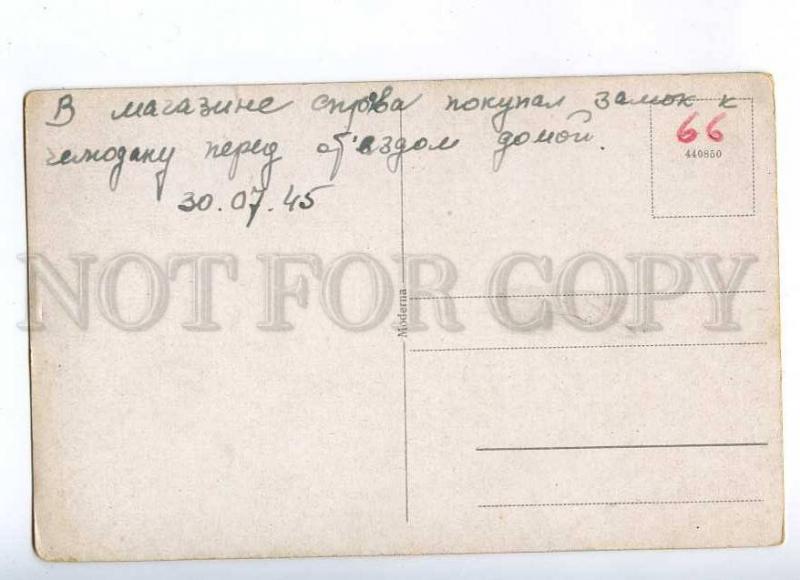 В магазине справа покупал замок к
чемодану перед от'ездом домой.
30.07.45
66
440850
Moderna
NOT FOR COPY